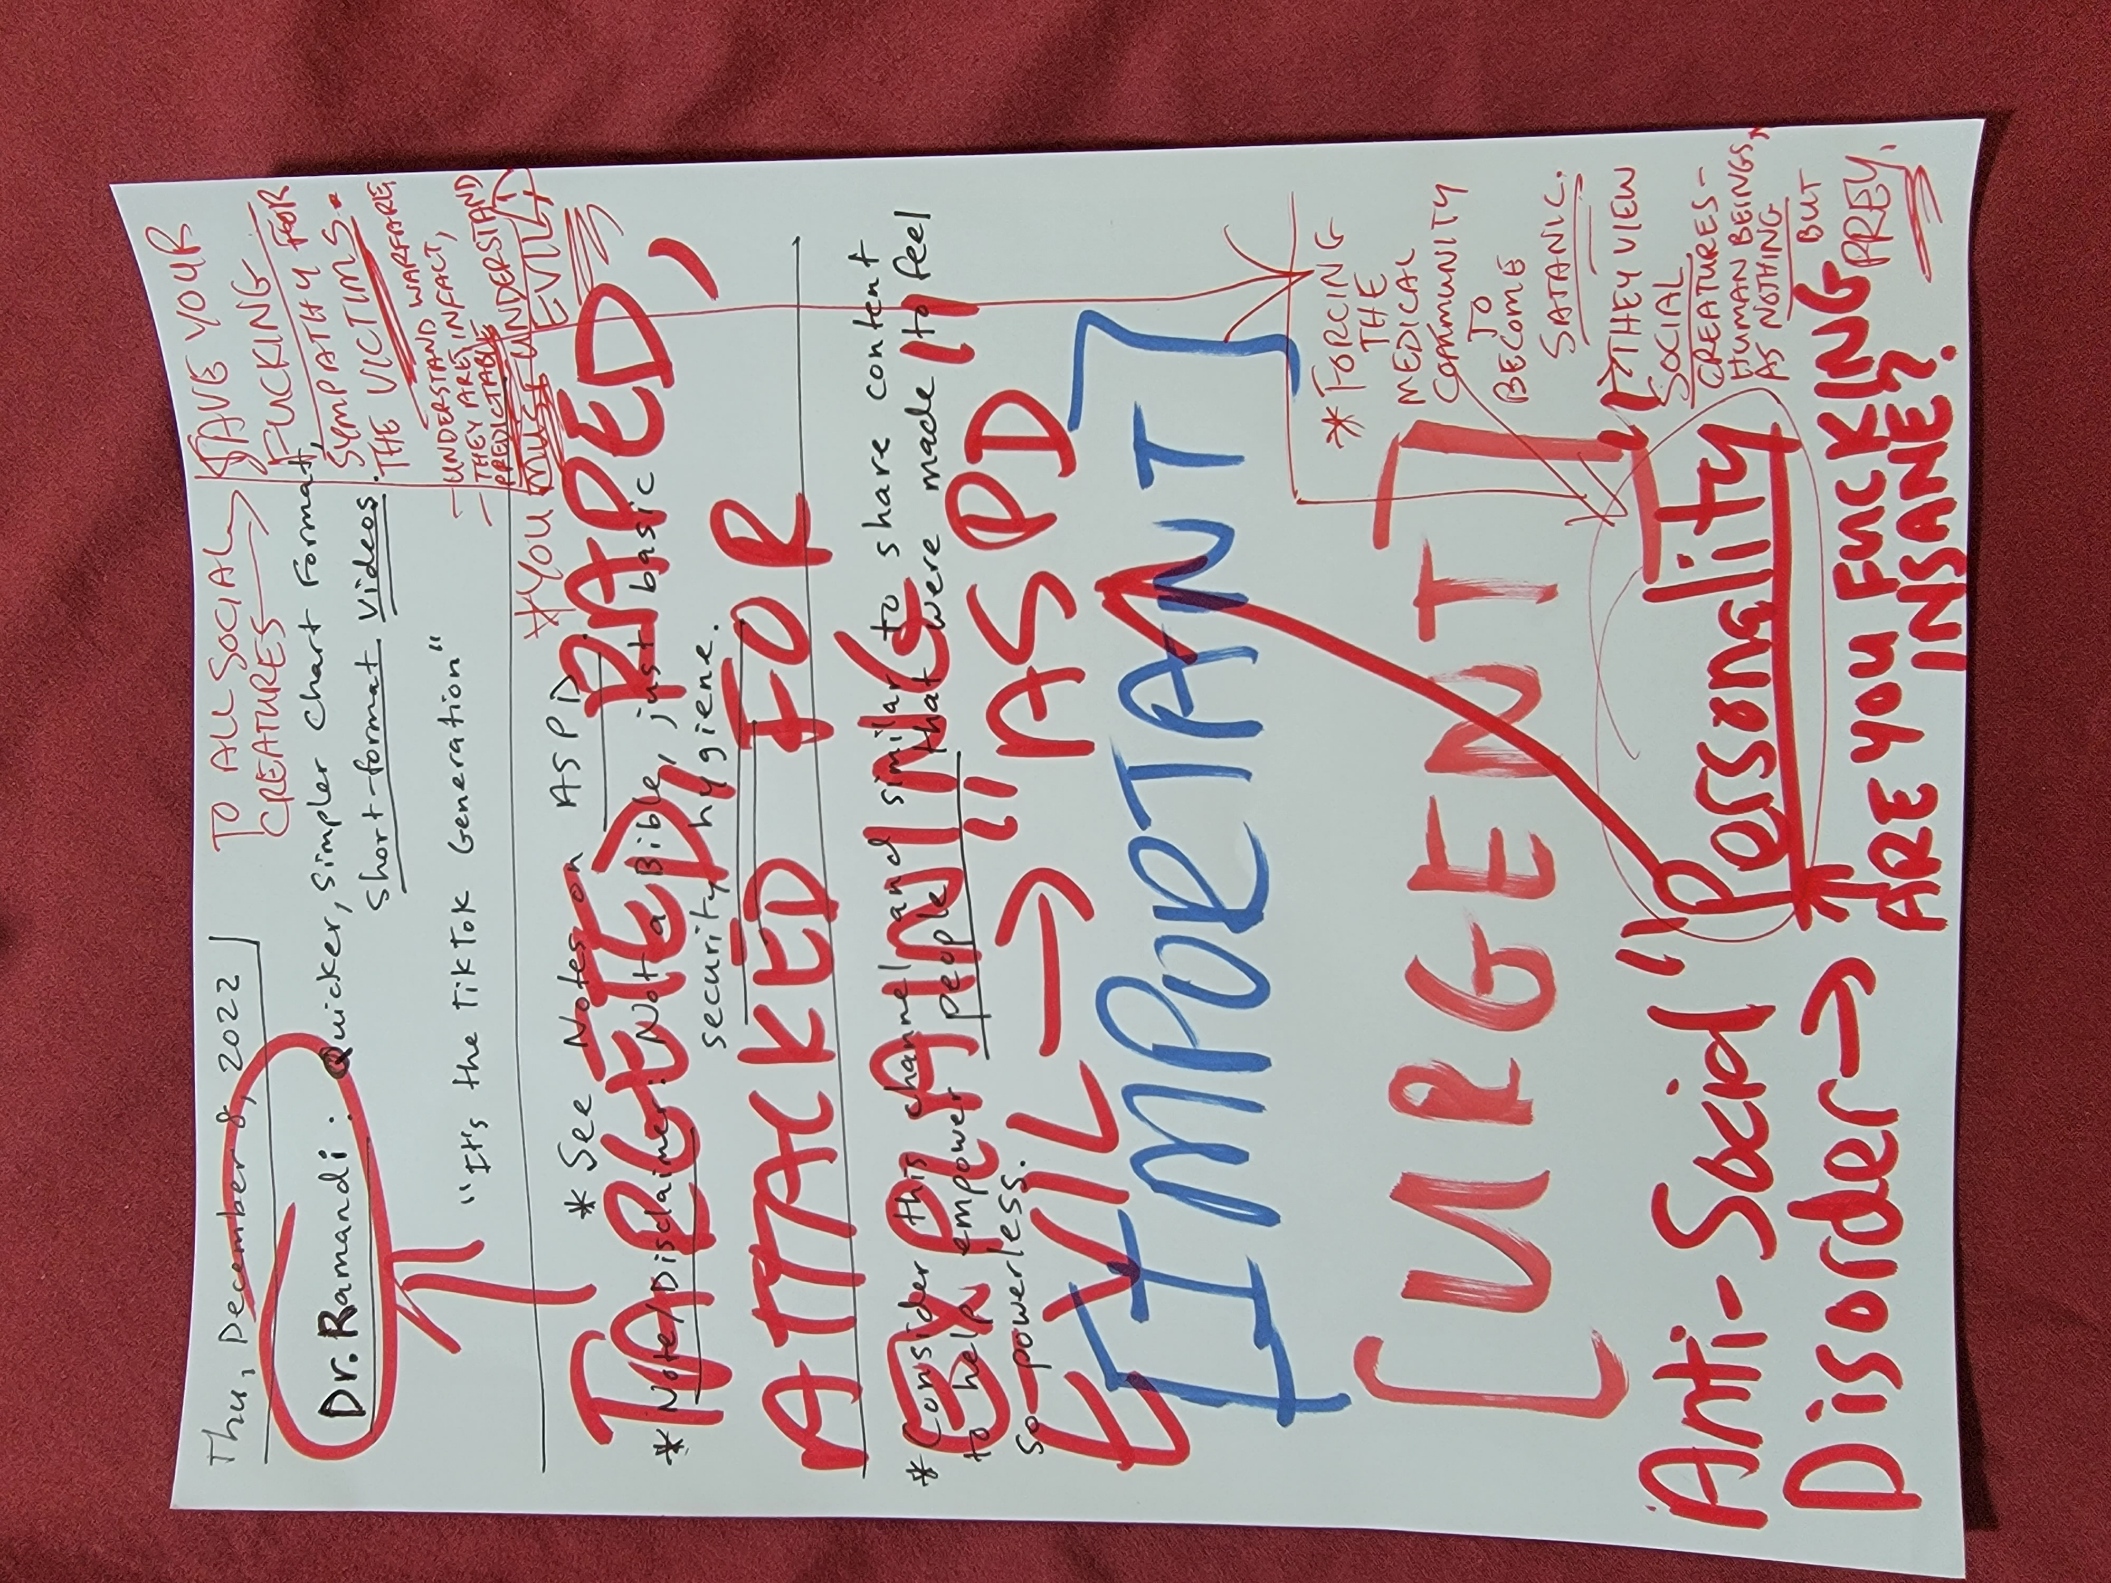 Thu, December 8, 2022
TO ALL SOCIAL
CREATURES
SAVE YOUR
FUCKING
SYMPATHY FOR
THE VICTIMS.
- UNDERSTAND WARFARE,
- THEY ARE, INFACT,
PREDICTABLE
*YOU MUST UNDERSTAND
EVIL
Dr. Ramandi: Quicker, Simpler Chart Format,
Short-format Videos.
"It's the TikTok Generation"
* See Notes on ASPD.
* Note/Disclaimer: Not a Bible, just basic
security hygiene.
* Consider this channel and similar to share content
to help empower people that were made to feel
so powerless.
TARGETED, RAPED,
ATTACKED FOR
EXPLAINING
EVIL → "ASPD"
[IMPORTANT]
[URGENT]
Anti-Social "Personality"
Disorder →
ARE YOU FUCKING
INSANE?
* FORCING
THE
MEDICAL
COMMUNITY
TO
BECOME
SATANIC.
→ THEY VIEW
SOCIAL
CREATURES-
HUMAN BEINGS,
AS NOTHING
BUT
PREY.